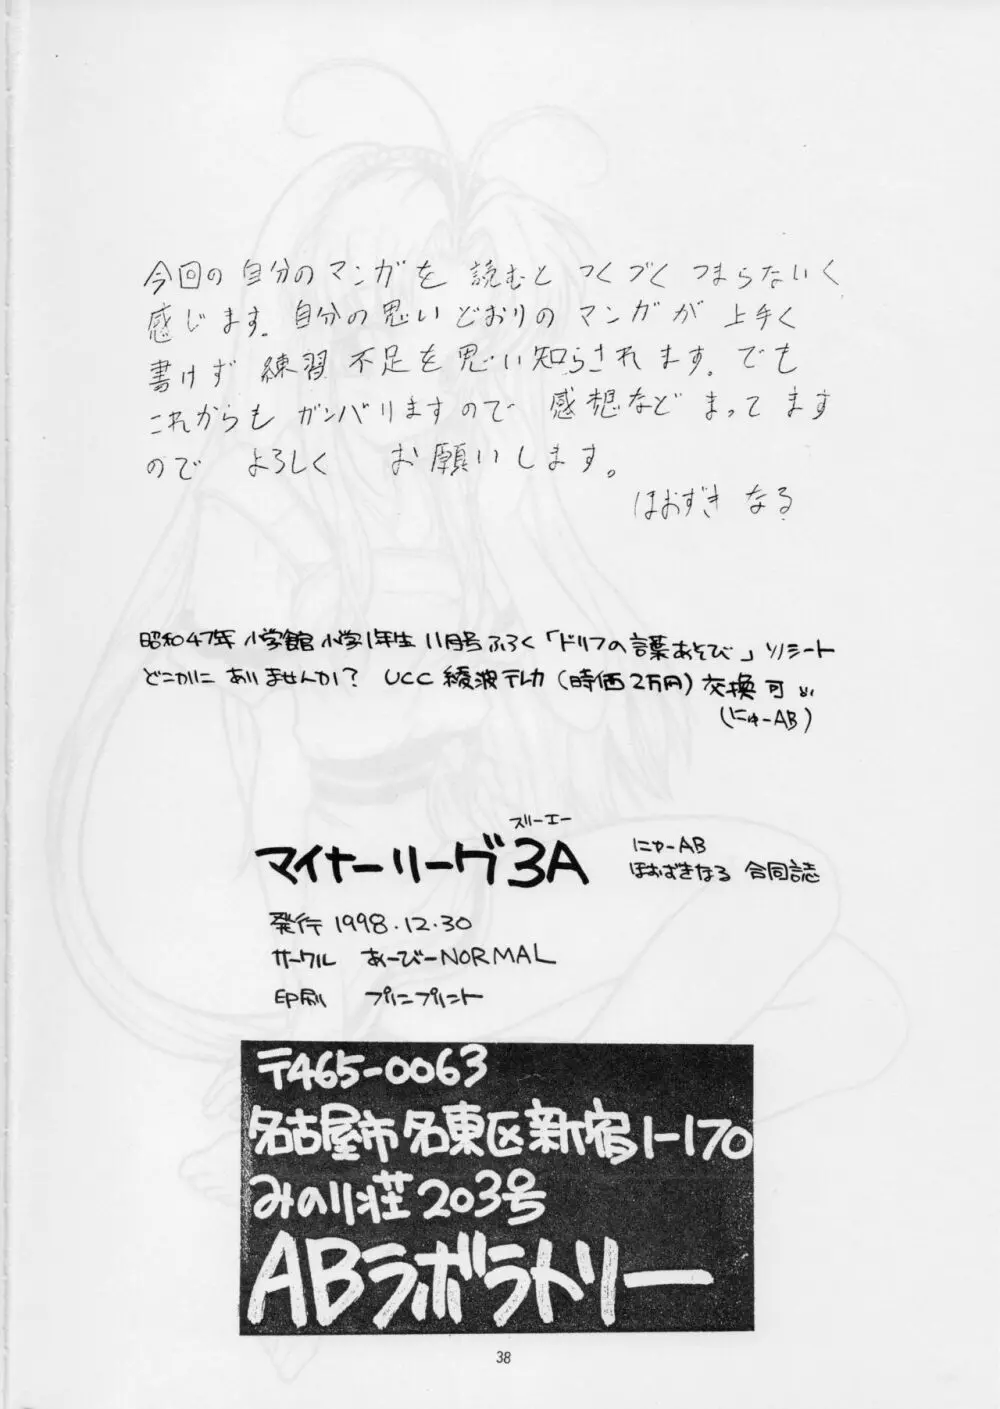 今回の自分のマンガを 読むと つくづく つまらないく
感じます。自分の思いどおりの マンガが 上手く
書けず 練習 不足を思い知らされます。でも
これからも ガンバリますので 感想など まってます
ので よろしく お願いします。
ほおずき なる
昭和47年 小学館 小学1年生 11月号 ふろく「ドリフの言葉あそび」ソノシート
どこかに ありませんか? UCC 綾波テレカ(時価2万円)交換 可
(にゅーAB)
スリーエー
マイナーリーグ3A
にゅーAB
ほおずきなる 合同誌
発行 1998.12.30
サークル あーびーNORMAL
印刷 プリンプリント
〒465-0063
名古屋市名東区新宿1-170
みのり荘203号
ABラボラトリー
38